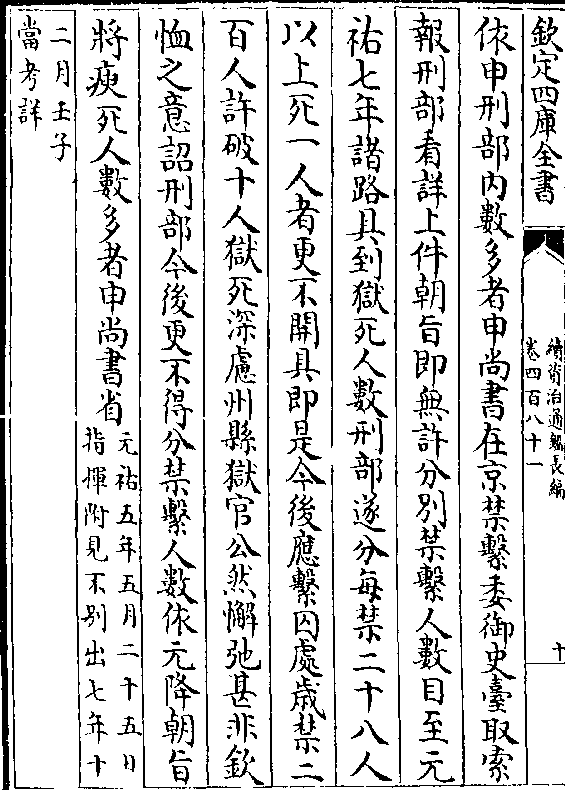 欽定四庫全書
續資治通鑑長編
卷四百八十一
十
依申刑部內數多者申尚書在京禁繫委御史臺取索
報刑部看詳上件朝旨即無許分別禁繫人數目至元
祐七年諸路具到獄死人數刑部遂分每禁二十八人
以上死一人者更不開具即是今後應繫囚處歲禁二
百人許破十人獄死深慮州縣獄官公然懈弛甚非欽
恤之意詔刑部今後更不得分禁繫人數依元降朝旨
將瘐死人數多者申尚書省元祐五年五月二十五日
指揮附見不別出七年十
二月壬子
當考詳